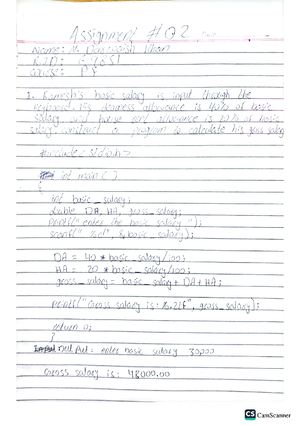 Assignment # 02
Name: M. Khan
RID:
course: PF
1. Ramesh's basic salary is input through the
keyboard. His dearness allowance is 40% of basic
salary, and house rent advance is 20% of basic
salary. construct a program to calculate his gross salary
#include <stdio.h>
int main()
{
int basic_salary;
double DA, HA, gross_salary;
printf(" enter the basic salary ");
scanf(" &basic_salary);
DA = 40 * basic_salary/100;
HA = 20 * basic_salary/100;
gross_salary = basic_salary + DA + HA;
printf("Gross salary is: %.2lf", gross_salary);
return 0;
}
Out Put: enter basic salary 30000
Gross salary is: 48000.00
CS CamScanner